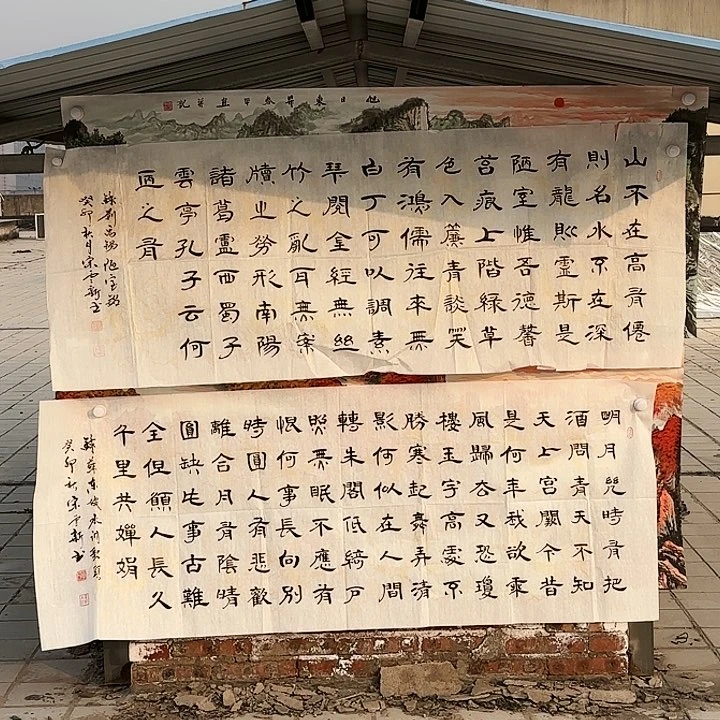 旭日東昇
山不在高有僊
則名水不在深
有龍則靈斯是
陋室惟吾德馨
苔痕上階綠草
色入簾青談笑
有鴻儒往來無
白丁可以調素
琴閱金經無絲
竹之亂耳無案
牘之勞形南陽
諸葛廬西蜀子
雲亭孔子云何
陋之有
錄劉禹錫陋室銘
癸卯秋月宋云新書
明月几時有把
酒問青天不知
天上宮闕今昔
是何年我欲乘
風歸去又恐瓊
樓玉宇高處不
勝寒起舞弄清
影何似在人間
轉朱閣低綺戶
照無眠不應有
恨何事長向別
時圓人有悲歡
離合月有陰晴
圓缺此事古難
全但願人長久
千里共嬋娟
錄蘇東坡水調歌頭
癸卯秋宋云新書